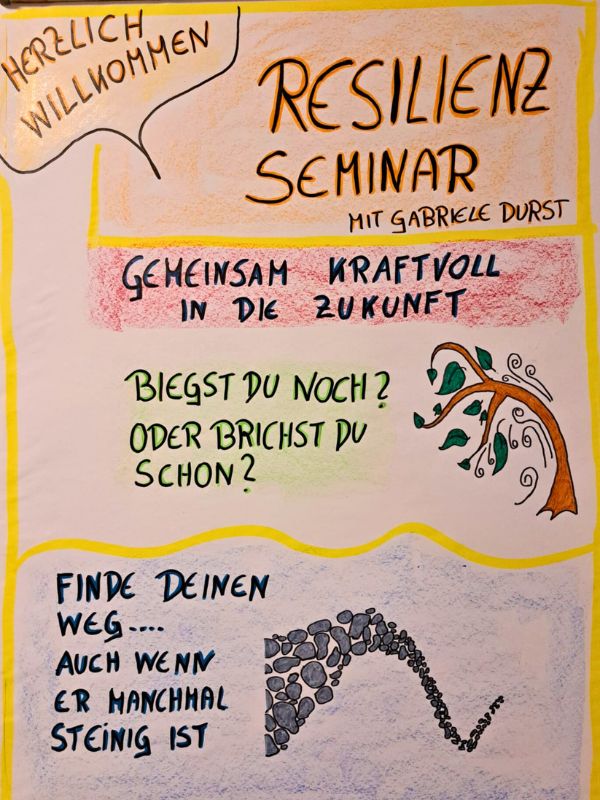 HERZLICH
WILLKOMMEN
RESILIENZ
SEMINAR
MIT GABRIELE DURST
GEMEINSAM KRAFTVOLL
IN DIE ZUKUNFT
BIEGST DU NOCH?
ODER BRICHST DU
SCHON?
FINDE DEINEN
WEG....
AUCH WENN
ER MANCHMAL
STEINIG IST